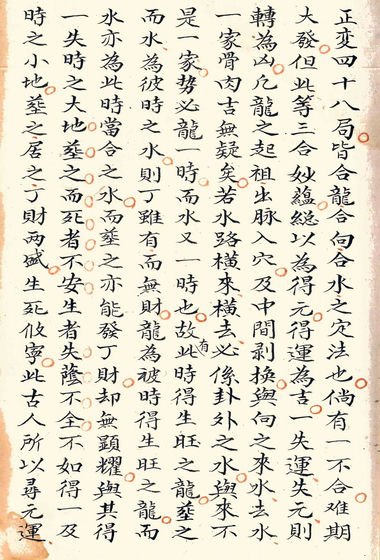 正変四十八局皆合龍合向合水之定法也倘有一不合难期
大發但此等三合妙蕴総以為得元得運為吉一失運失元則
轉為凶凣龍之起祖出脉入穴及中間剥換與向之來水去水
一家骨肉吉無疑矣若水路橫來橫去必係卦外之水與來不
是一家势必龍一時而水又一時也故此時有得生旺之龍塟之
而水為彼時之水則丁雖有而無財龍為被時得生旺之龍而
水亦為此時當合之水而塟之亦能發丁財却無顕耀與其得
一失時之大地塟之而死者不安生者失蔭不全不如得一及
時之小地塟之居之丁財两盛生死攸寧此古人所以尋元運